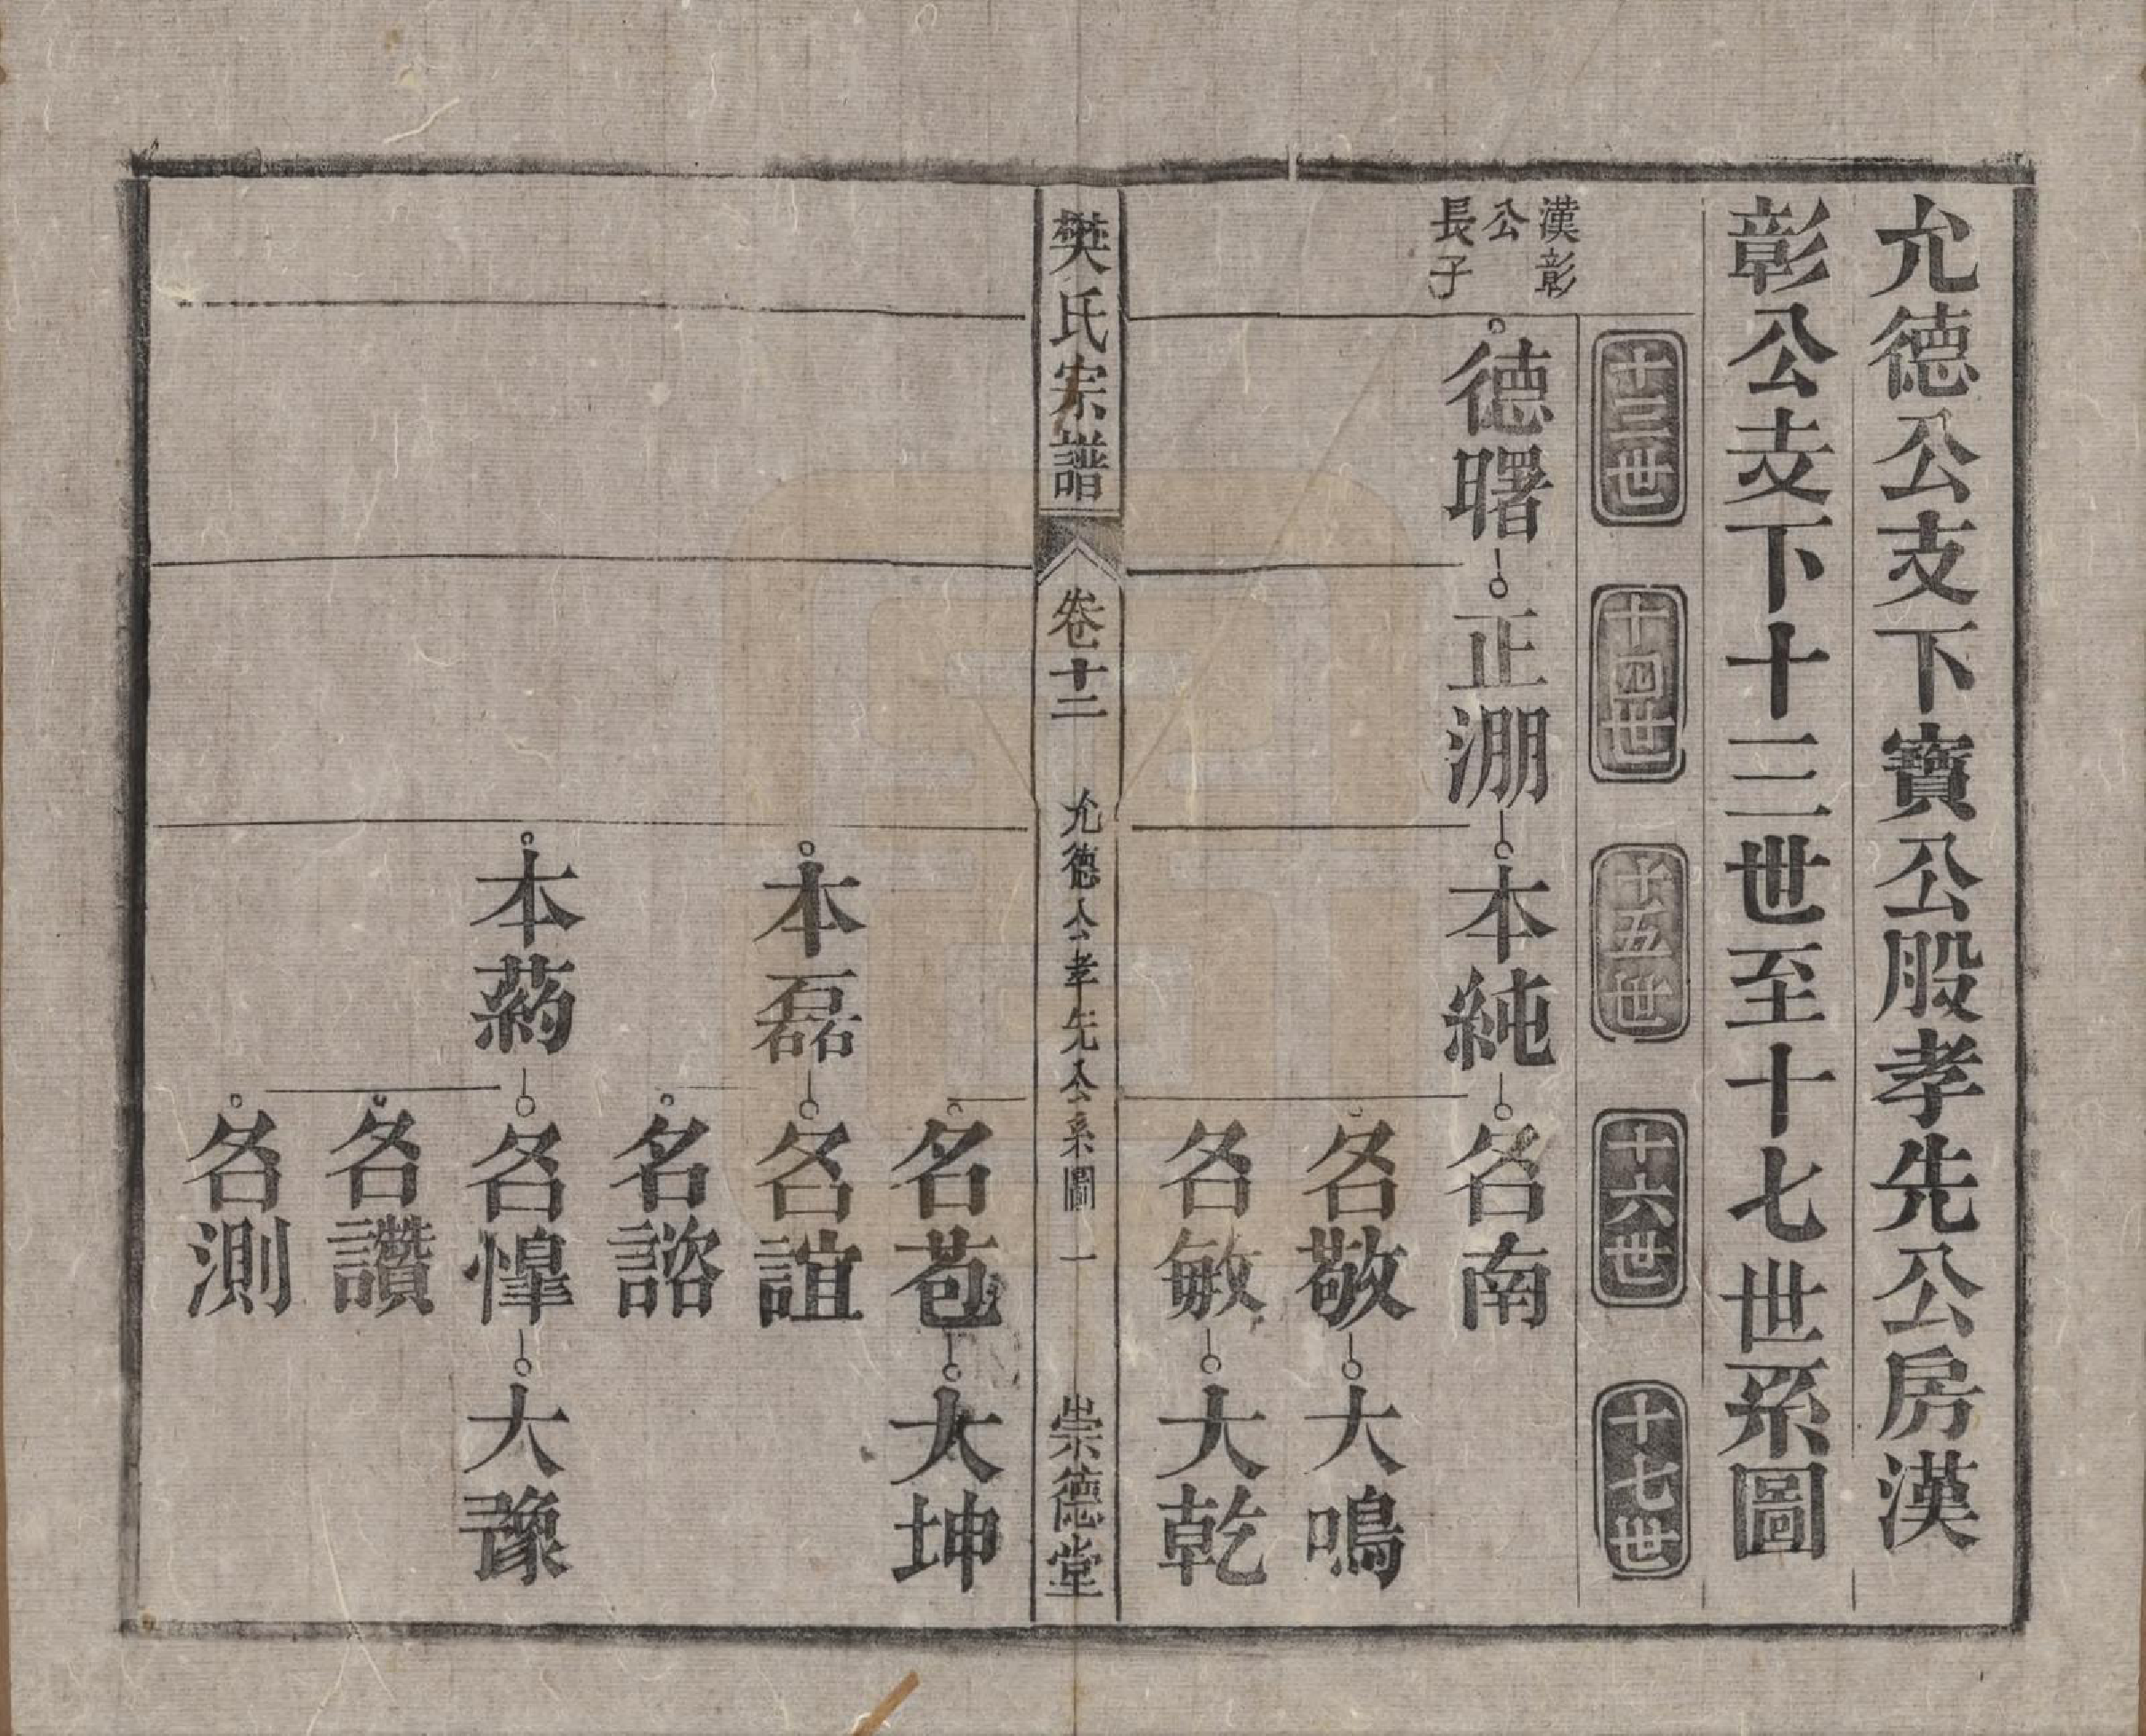 允德公支下寶公股孝先公房漢
彰公支下十三世至十七世系圖
十三世 十四世 十五世 十六世 十七世
漢彰
公
長子
德曙 正淜 本純 名南
名敬 大鳴
名敏 大乾
樊氏宗譜 卷十二 允德公孝先公系圖 一 崇德堂
名苞 大坤
本磊 名誼
名諮
本葯 名惶 大豫
名讚
名測